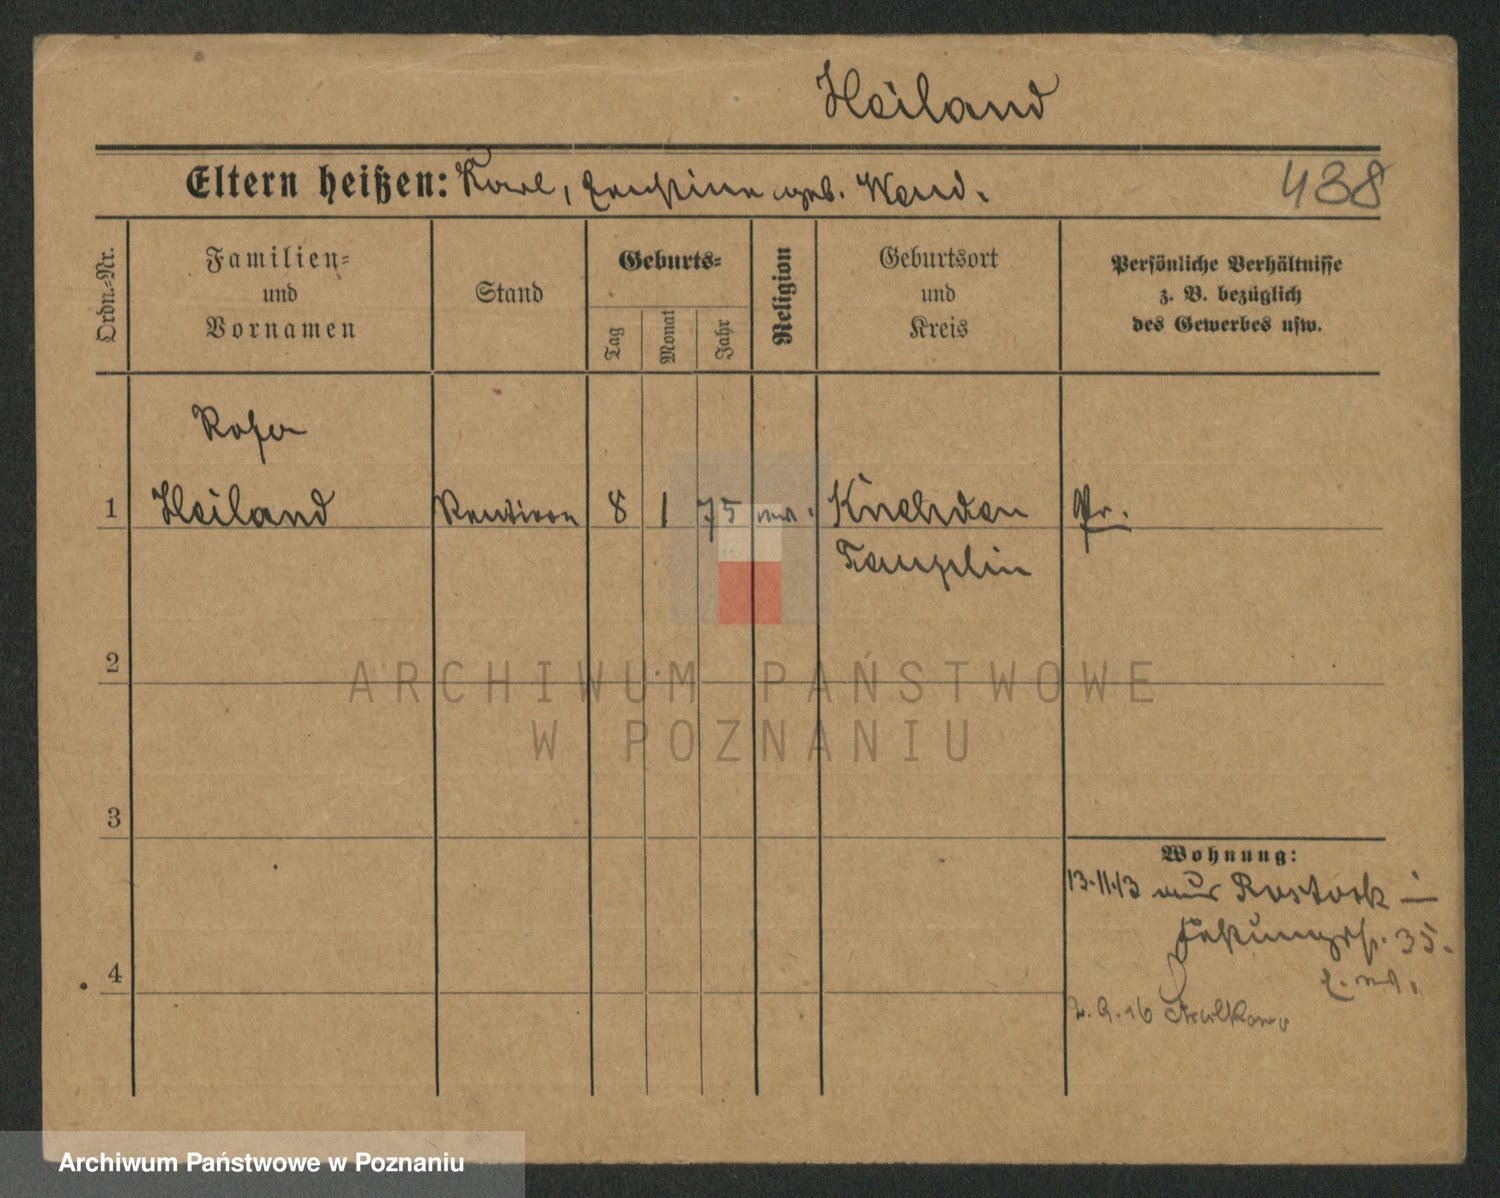 Heiland
Eltern heißen: Karl, geb. Wend.
438
Ordn.-Nr.
Familien-
und
Vornamen
Stand
Geburts-
Tag
Monat
Jahr
Religion
Geburtsort
und
Kreis
Persönliche Verhältnisse
z. B. bezüglich
des Gewerbes usw.
Rosa
1 Heiland Rentiere 8 1 75 ev. Knehden Pr.
Templin
2
ARCHIWUM PAŃSTWOWE
W POZNANIU
3
Wohnung:
13.11.13 aus Rostock in
35.
4
2.9.16
Archiwum Państwowe w Poznaniu